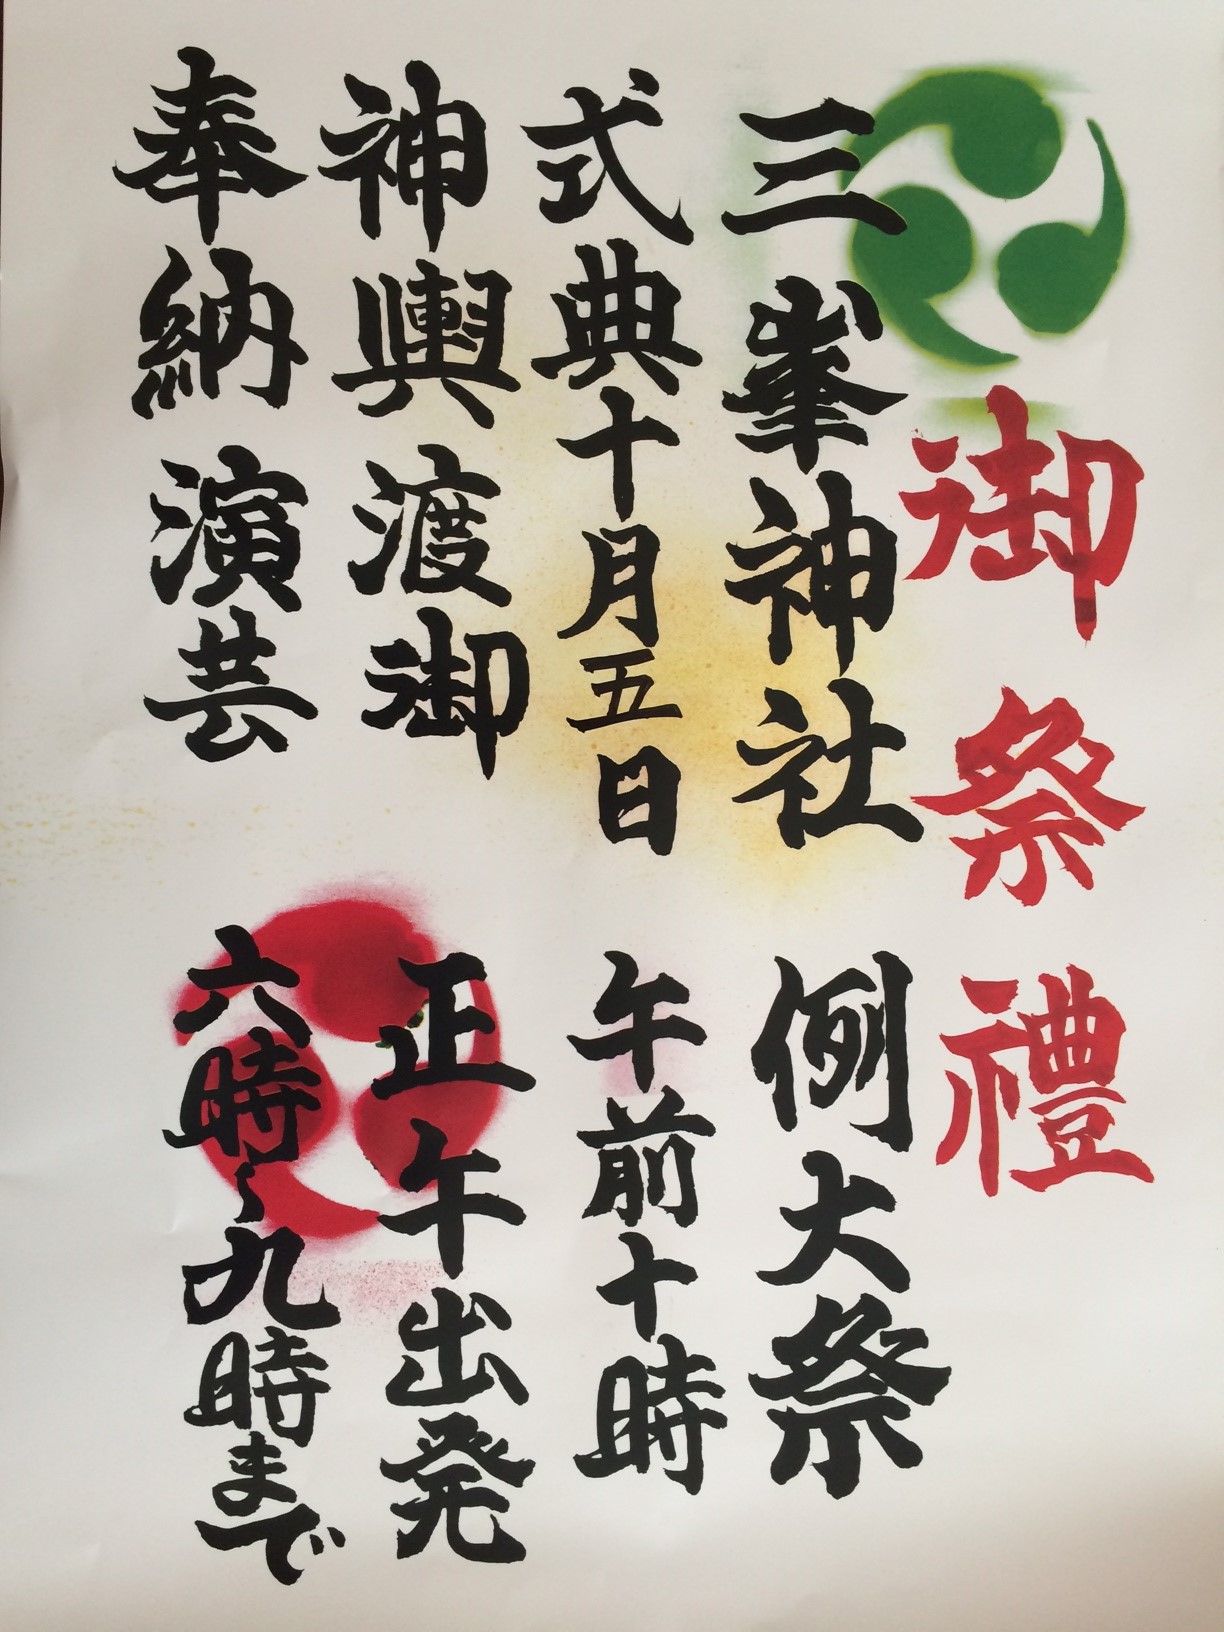 御祭禮
三峯神社 例大祭
式典十月五日 午前十時
神輿渡御 正午出発
奉納演芸 六時〜九時まで